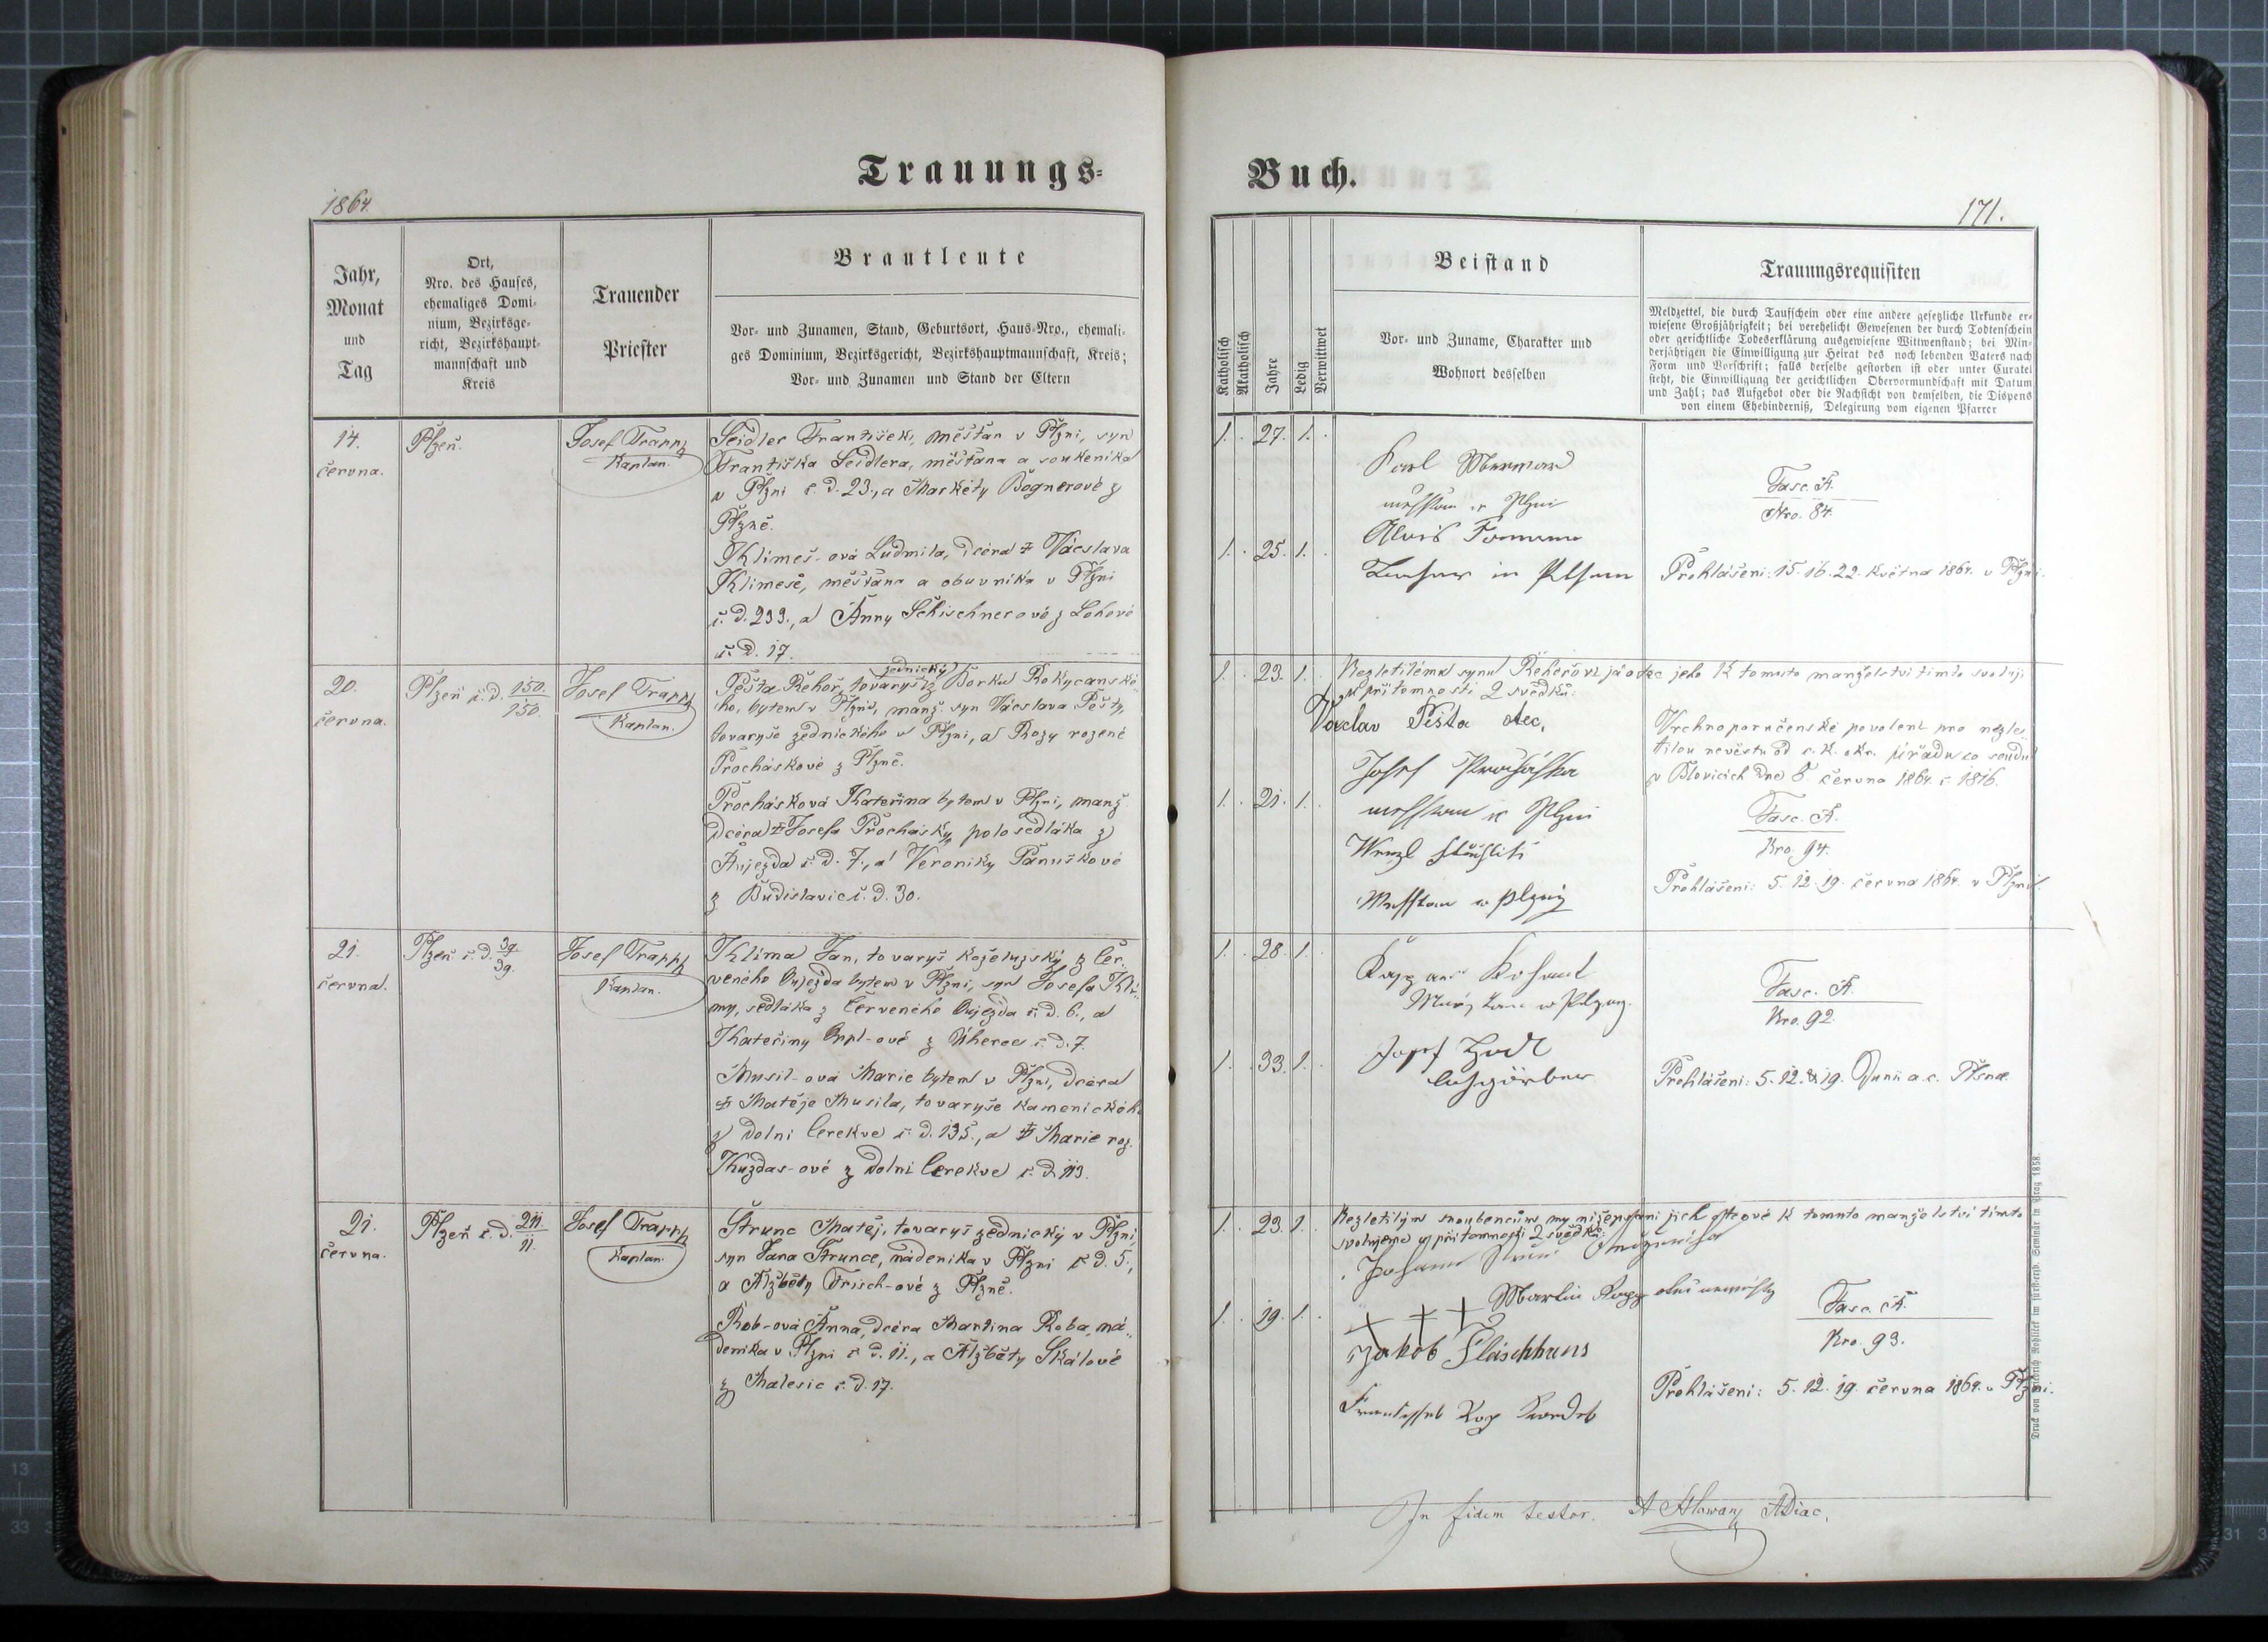 Trauungs-
1864.
Jahr,
Monat
und
Tag
Ort,
Nro. des Hauses,
ehemaliges Domi-
nium, Bezirksge-
richt, Bezirkshaupt-
mannschaft und
Kreis
Trauender
Priester
Brautleute
Vor- und Zunamen, Stand, Geburtsort, Haus-Nro., ehemali-
ges Dominium, Bezirksgericht, Bezirkshauptmannschaft, Kreis;
Vor- und Zunamen und Stand der Eltern
14.
června.
Plzeň.
Josef Trappl
Kaplan.
Seidler František, měšťan v Plzni, syn
Františka Seidlera, měšťana a soukenika
v Plzni č. d. 23., a Markéty Bognerové z
Plzně.
Klimeš-ová Ludmila, dcéra † Vácslava
Klimeše, měšťana a obuvnika v Plzni
č. d. 233., a Anny Schischnerové z Lohové
č. d. 17.
20.
června.
Plzeň č. d. 150.
150.
Josef Trappl
Kaplan.
zednický
Pešta Řehoř, tovaryš z Borku Rokycanské-
ho, bytem v Plzni, manž. syn Vácslava Pešty,
tovaryše zednického v Plzni, a Rozy rozené
Procháskové z Plzně.
Procháskова Kateřina bytem v Plzni, manž.
dcéra † Josefa Prochásky, polosedláka z
Aujezda č. d. 7., a Veroniky Panuškové
z Budislavic č. d. 30.
21.
června.
Plzeň č. d. 39.
39.
Josef Trappl
Kaplan.
Klima Jan, tovaryš koželuzský z Čer-
veného Oujezda bytem v Plzni, syn Josefa Kli-
my, sedláka z Červeného Oujezda č. d. 6., a
Kateřiny -ové z Úherec č. d. 7.
Musil-ová Marie bytem v Plzni, dcéra
† Matěje Musila, tovaryše kamenického
z Dolni Cerekve č. d. 135., a † Marie roz.
Kuzdas-ové z Dolni Cerekve č. d. 113.
21.
června.
Plzeň č. d. 211
11.
Josef Trappl
Kaplan.
Štrunc Matěj, tovaryš zednický v Plzni,
syn Jana Štrunce, nádenika v Plzni č. d. 5.,
a Alžběty Frisch-ové z Plzně.
Rob-ová Anna, dcéra Martina Roba, ná-
denika v Plzni č. d. 11., a Alžběty Skálové
z Malesic č. d. 17.
Buch.
171.
Katholisch
Akatholisch
Jahre
Ledig
Verwittwet
Beistand
Vor- und Zuname, Charakter und
Wohnort desselben
Trauungsrequisiten
Meldzettel, die durch Taufschein oder eine andere gesetzliche Urkunde er-
wiesene Großjährigkeit; bei verehelicht Gewesenen der durch Todtenschein
oder gerichtliche Todeserklärung ausgewiesene Wittwenstand; bei Min-
derjährigen die Einwilligung zur Heirat des noch lebenden Vaters nach
Form und Vorschrift; falls derselbe gestorben ist oder unter Curatel
steht, die Einwilligung der gerichtlichen Obervormundschaft mit Datum
und Zahl; das Aufgebot oder die Nachsicht von demselben, die Dispens
von einem Ehehinderniß, Delegirung vom eigenen Pfarrer
1. 27. 1.
Karl
messtan w Plzni
1. 25. 1.
Alois
in Pilsen
Fasc. A.
Nro. 84.
Prohlášeni: 15. 16. 22. května 1864. v Plzni.
1. 23. 1.
Nezletilému synu Řehořovi já otec jeho k tomuto manželstvi timto svoluji
v přitomnosti 2 svědků:
Vaclav Pešta otec.
Josef Procháska
1. 21. 1.
messtan w Plzni
Wenzl
Messtan w Plzni
Vrchnoporučenské povolení pro nezle-
tilou nevěstu od c. k. okr. úřadu co soudu
v Blovicích dne 8. června 1864. č. 1816.
Fasc. A.
Nro. 94.
Prohlášeni: 5. 12. 19. června 1864. v Plzni.
1. 28. 1.
w Plzny.
1. 33. 1.
Josef
Fasc. A.
Nro. 92.
Prohlášeni: 5. 12. & 19. Junii a. c. Plsnæ.
1. 23. 1.
Nezletilým snoubencům my nižepsani jich otcové k tomuto manželstvi timto
svolujeme v přitomnosti 2 svědků:
Johann
Martin
1. 19. 1.
† † †
Jakob Fläischhans
Fasc. A.
Nro. 93.
Prohlášeni: 5. 12. 19. června 1864. v Plzni.
In fidem testor. A Hlawan ADiac.
Druck von Friedrich Rohliček im fürsterzb. Seminär in Prag 1858.